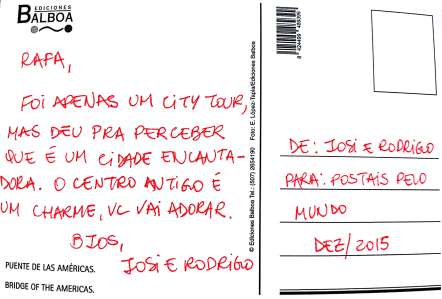 EDICIONES
BALBOA
RAFA,
FOI APENAS UM CITY TOUR,
MAS DEU PRA PERCEBER
QUE É UM CIDADE ENCANTA-
DORA. O CENTRO ANTIGO É
UM CHARME, VC VAI ADORAR.
BJOS,
JOSI E RODRIGO
PUENTE DE LAS AMÉRICAS.
BRIDGE OF THE AMERICAS.
© Ediciones Balboa Tel.: (507) 2654190 Foto: E. López-Tapia/Ediciones Balboa
DE: JOSI E RODRIGO
PARA: POSTAIS PELO
MUNDO
DEZ/2015